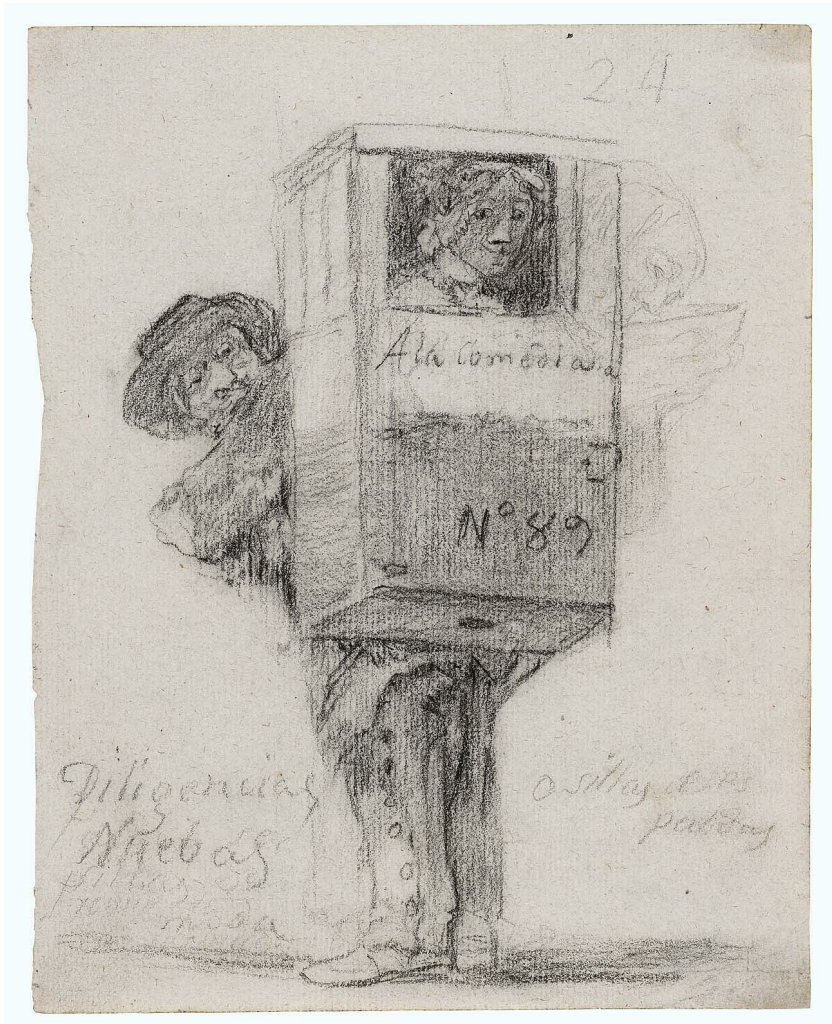 24
A la comedia
Nº 89
Diligencias
Nuebas
O sillas de es
paldas